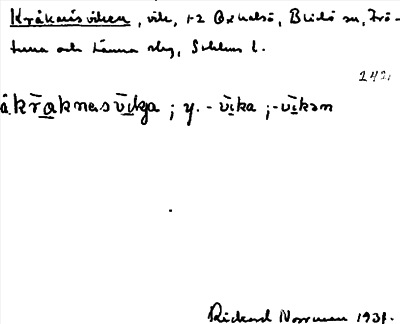 Kråknäsviken, vik, 12 Oxhalsö, Blidö sn, Frö-
tuna och Länna slg, Sthlms l.
242.
å. krāknasvīkja ; y. - vīka ; -vīkən
Rickard Norrman 1931.